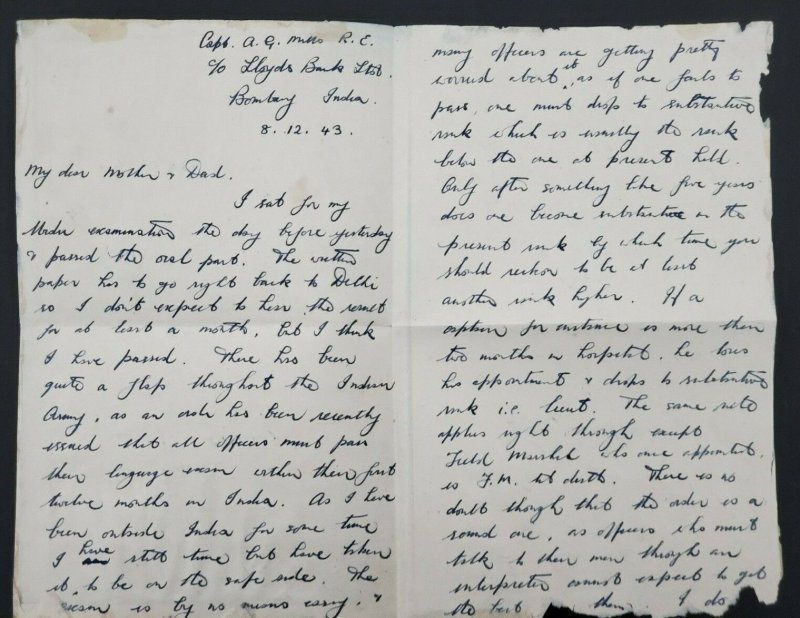 Capt. A. G. Mills R. E.
c/o Lloyds Bank Ltd.
Bombay India.
8. 12. 43.
My dear Mother & Dad.
I sat for my
Urdu examination the day before yesterday
& passed the oral part. The written
paper has to go right back to Delhi
so I don't expect to hear the result
for at least a month, but I think
I have passed. There has been
quite a flap throughout the Indian
Army, as an order has been recently
issued that all officers must pass
their language exam within their first
twelve months in India. As I have
been outside India for some time
I have still time but have taken
it, to be on the safe side. The
exam is by no means easy, &
many officers are getting pretty
worried about it, as if one fails to
pass, one must drop to substantive
rank which is usually the rank
below the one at present held.
Only after something like five years
does one become substantive in the
present rank by which time you
should reckon to be at least
another rank higher. If a
captain for instance is more than
two months in hospital, he loses
his appointment & drops to substantive
rank i.e. lieut. The same rule
applies right through except
Field Marshal who once appointed,
is F.M. till death. There is no
doubt though that the order is a
sound one, as officers who must
talk to their men through an
interpreter cannot expect to get
the best them. I do